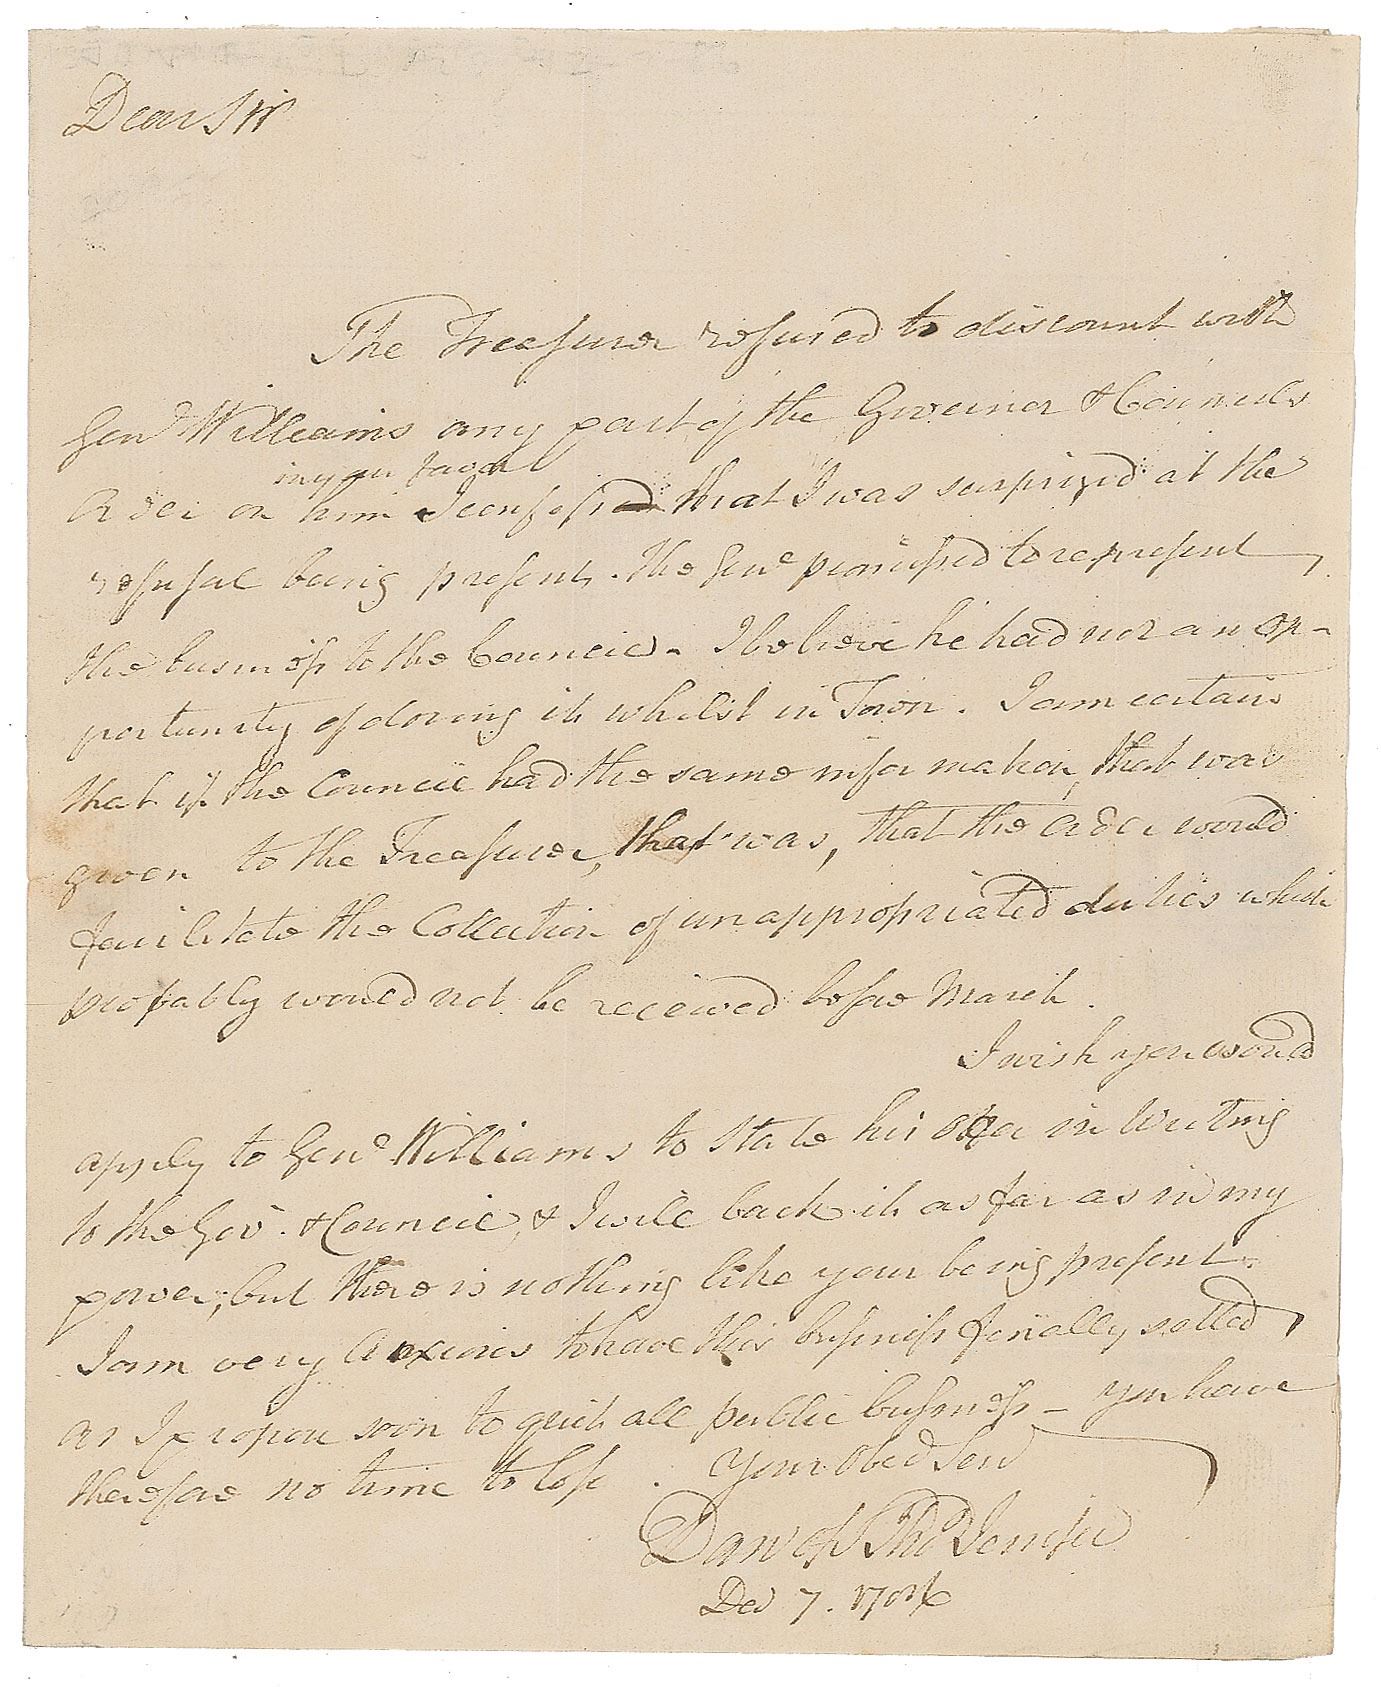 Dear Sir
The Treasurer refused to discount with
Genl Williams any part of the Governor & Councils
in your favor
Order on him I confess that I was surprized at the
refusal being present. The Genl promised to represent
the business to the Council - I believe he had not an op-
portunity of doing it whilst in Town. I am certain
that if the Council had the same information, that was
given to the Treasurer, that was, that the order would
facilitate the Collection of unappropriated duties which
probably would not be received before March.
I wish you would
apply to Genl Williams to State his in Writing
to the Gov. & Council, & I will back it as far as in my
power, but there is nothing like your being present.
I am very Anxious to have this business finally setled,
as I propose soon to quit all public business - you have
therefore no time to lose. Your Obed Serv
Dan of St Tho Jenifer
Dec 7.